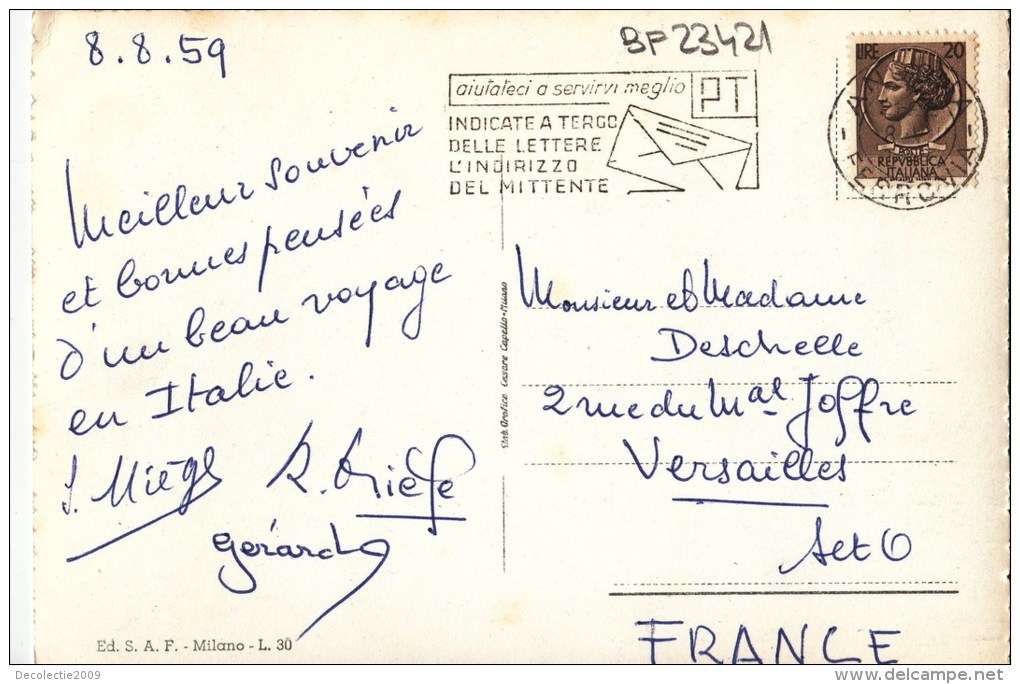 8.8.59
BP23421
LIRE 20
aiutateci a servirvi meglio
PT
INDICATE A TERGO
DELLE LETTERE
L'INDIRIZZO
DEL MITTENTE
POSTE
REPVBBLICA
ITALIANA
Meilleur souvenir
et bonnes pensées
d'un beau voyage
en Italie.
Gérard
Stab. Grafico Cesare Capello-Milano
Monsieur et Madame
Deschelle
2 rue du Mal Joffre
Versailles
S et O
FRANCE
Ed. S. A. F. - Milano - L. 30
Decolectie2009
delcampe.net